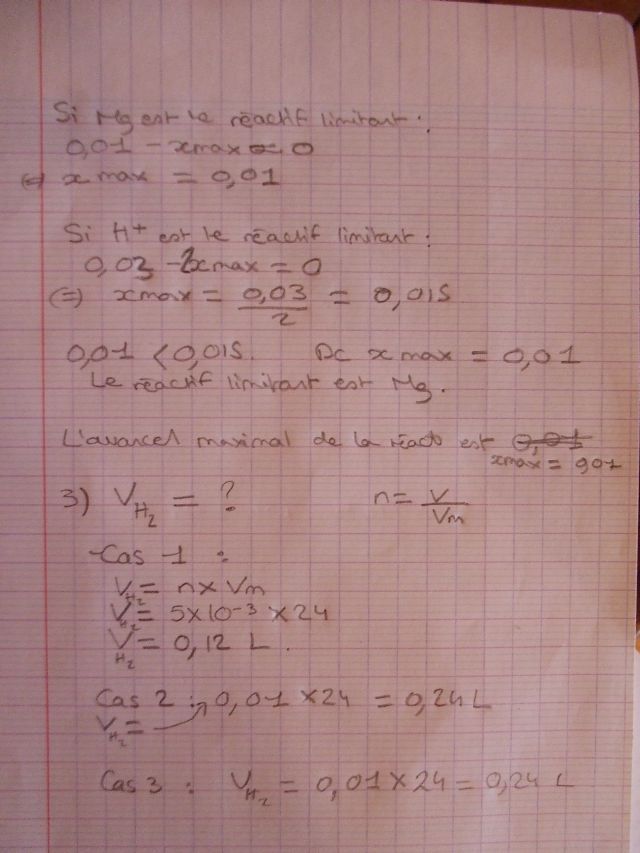 Si Mg est le réactif limitant :
0,01 - xmax = 0
⇔ xmax = 0,01
Si H+ est le réactif limitant :
0,03 - 2xmax = 0
(=) xmax = 0,03/2 = 0,015
0,01 < 0,015. Dc xmax = 0,01
Le réactif limitant est Mg.
L'avancel maximal de la réacto est 0,01
xmax = 0,01
3) V_H2 = ? n = V/Vm
- Cas 1 :
V_H2 = n x Vm
V_H2 = 5x10^-3 x 24
V_H2 = 0,12 L.
Cas 2 : 0,01 x 24 = 0,24 L
V_H2 =
Cas 3 : V_H2 = 0,01 x 24 = 0,24 L